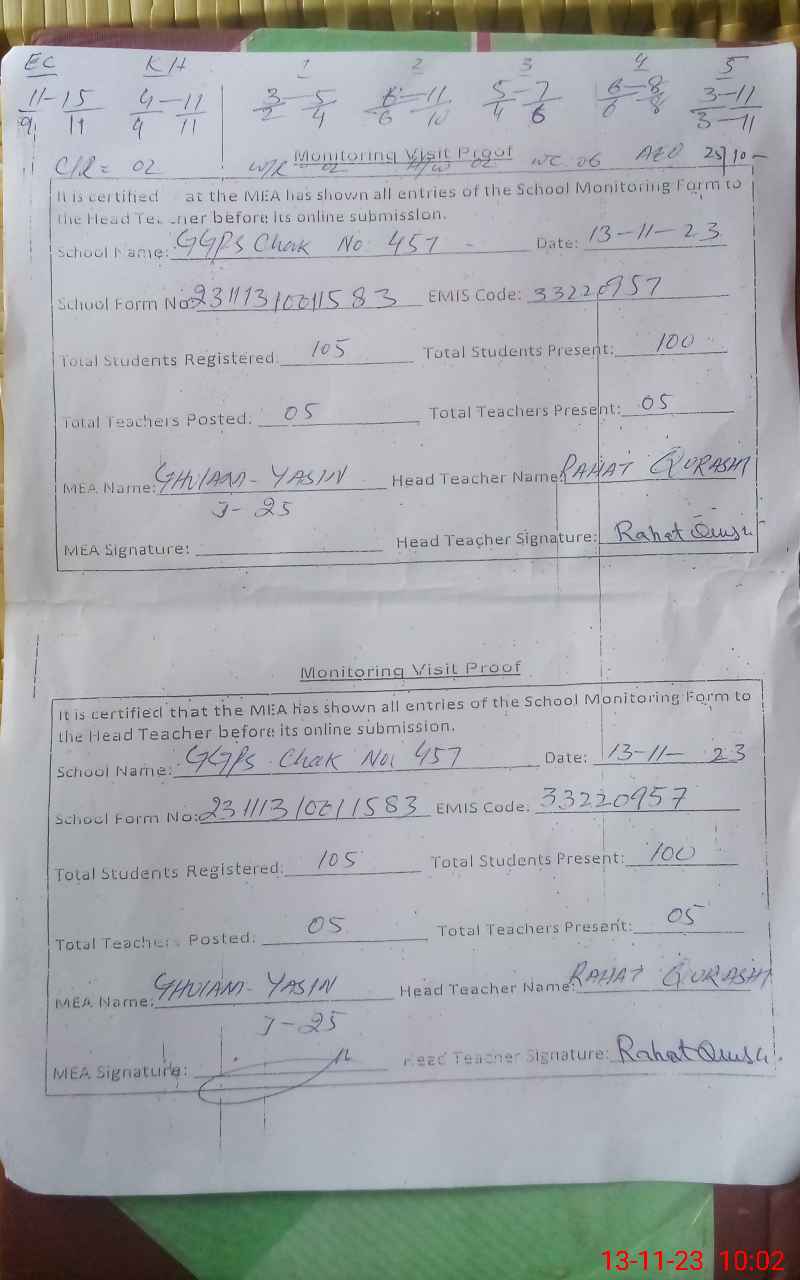 EC KH 1 2 3 4 5
11-15 4-11 3-5 6-11 5-7 6-8 3-11
9 11 4 11 2 4 6 10 4 6 6 8 3-11
C/R = 02 W/R 02 Monitoring Visit Proof H/W 02 WC 06 AEO 25/10-
It is certified at the MEA has shown all entries of the School Monitoring Form to
the Head Te cher before its online submission.
School Name: GGPS Chak No 457 - Date: 13-11-23
School Form No: 23111310011583 EMIS Code: 33220957
Total Students Registered: 105 Total Students Present: 100
Total Teachers Posted: 05 Total Teachers Present: 05
MEA Name: GHULAM-YASIN Head Teacher Name: RAHAT QURASHI
J-25
MEA Signature: Head Teacher Signature: Rahat
Monitoring Visit Proof
It is certified that the MEA has shown all entries of the School Monitoring Form to
the Head Teacher before its online submission.
School Name: GGPS Chak No. 457 Date: 13-11-23
School Form No: 23111310011583 EMIS Code: 33220957
Total Students Registered: 105 Total Students Present: 100
Total Teachers Posted: 05 Total Teachers Present: 05
MEA Name: GHULAM-YASIN Head Teacher Name: RAHAT QURASHI
J-25
MEA Signature: Head Teacher Signature: Rahat
13-11-23 10:02